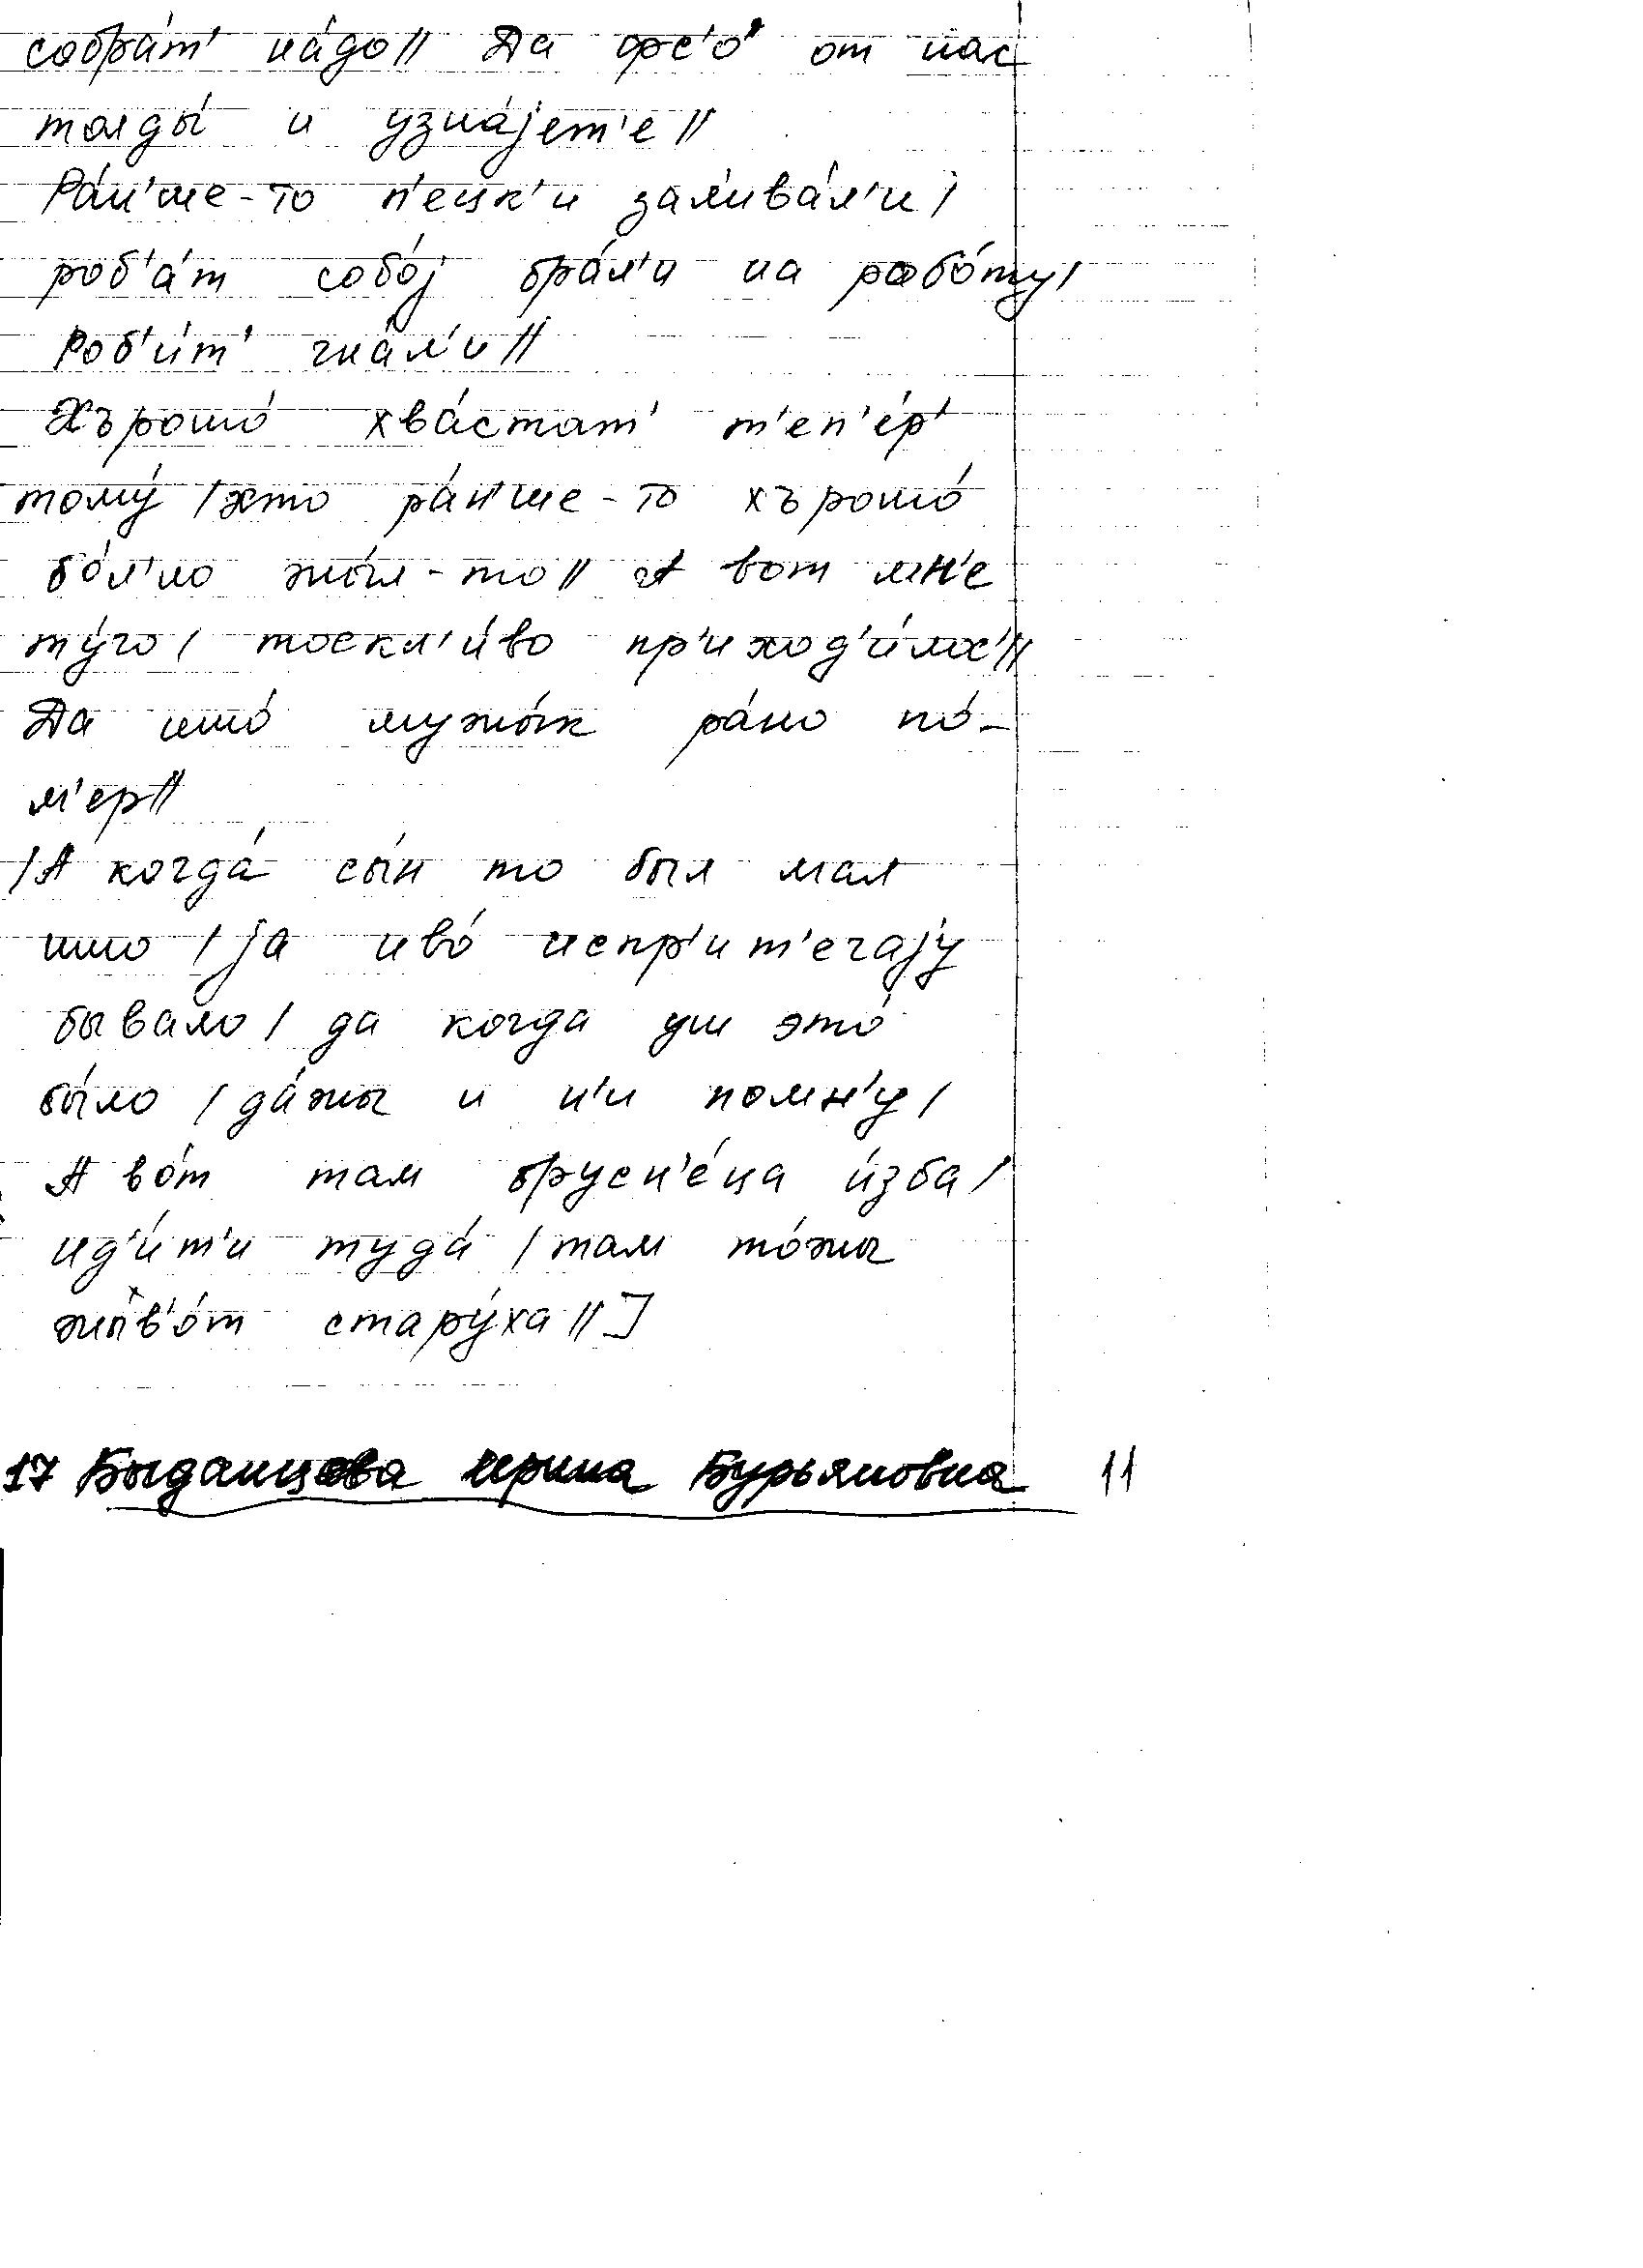 собра́т' на́до// Да фс'о́ от нас
толды́ и узна́jет'е//
Ра́н'ше-то п'ецк'и зал'ива́л'и/
роб'а́т собо́j бра́л'и на рабо́ту/
роб'и́т' гна́л'и//
Хърошо́ хва́стат' т'еп'е́р'
тому́ /хто ра́н'ше-то хърошо́
бо́л'но жы́л-то// А вот мн'е
ту́го/ тоскл'и́во пр'иход'и́лос'//
Да ишо́ мужы́к ра́но по́-
м'ер//
/А когда́ сы́н то был мал
ишо /ja иво́ испр'ит'егаjу
бывало/ да когда уш это́
бы́ло /да́жы и н'и помн'у/
А во́т там брусн'е́ца и́зба/
ид'и́т'и туда́ /там то́жы
жыв'о́т стару́ха//]
17 Быданцева Ирина Бурьяновна 11